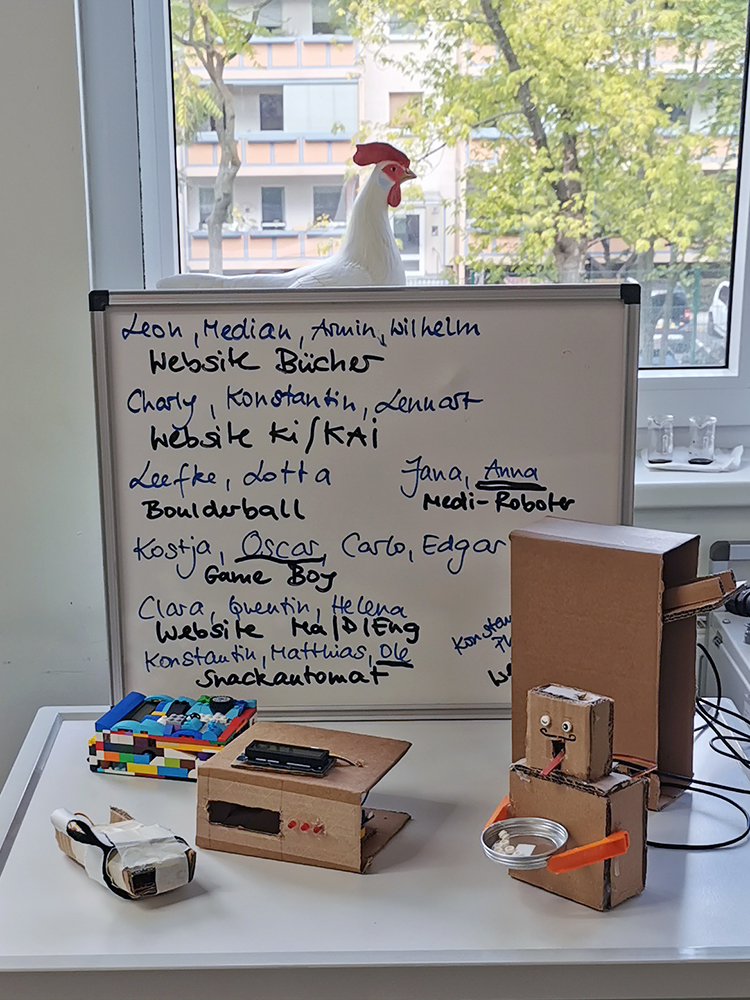 Leon, Median, Armin, Wilhelm
Website Bücher
Charly, Konstantin, Lennart
Website Ki/KAi
Leefke, Lotta
Boulderball
Jana, Anna
Medi-Roboter
Kostja, Oscar, Carlo, Edgar
Game Boy
Clara, Quentin, Helena
Website Ma/D/Eng
Konstantin, Matthias, Ole
Snackautomat